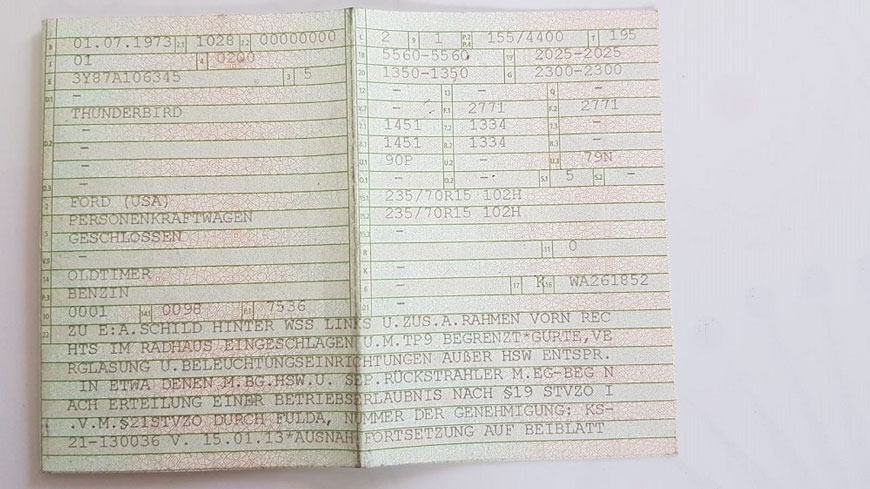 B 01.07.1973 2.1 1028 2.2 00000000
J 01 4 0200
E 3Y87A106345 3 5
D.1 -
THUNDERBIRD
-
D.2 -
-
-
D.3 -
2 FORD (USA)
5 PERSONENKRAFTWAGEN
GESCHLOSSEN
V.9 -
14 OLDTIMER
P.3 BENZIN
10 0001 14.1 0098 P.1 7536
L 2 9 1 P.2 P.4 155/4400 T 195
18 5560-5560 19 2025-2025
20 1350-1350 G 2300-2300
12 - 13 - Q -
V.7 - F.1 2771 F.2 2771
7.1 1451 7.2 1334 7.3 -
8.1 1451 8.2 1334 8.3 -
U.1 90P U.2 - U.3 79N
O.1 - O.2 - S.1 5 S.2 -
15.1 235/70R15 102H
15.2 235/70R15 102H
15.3 -
R - 11 0
K -
6 - 17 K 16 WA261852
21 -
22 ZU E:A.SCHILD HINTER WSS LINKS U.ZUS.A.RAHMEN VORN REC
HTS IM RADHAUS EINGESCHLAGEN U.M.TP9 BEGRENZT*GURTE,VE
RGLASUNG U.BELEUCHTUNGSEINRICHTUNGEN AUßER HSW ENTSPR.
IN ETWA DENEN M.BG.HSW.U. SEP.RÜCKSTRAHLER M.EG-BEG N
ACH ERTEILUNG EINER BETRIEBSERLAUBNIS NACH §19 STVZO I
.V.M.§21STVZO DURCH FULDA, NUMMER DER GENEHMIGUNG: KS-
21-130036 V. 15.01.13*AUSNAH FORTSETZUNG AUF BEIBLATT